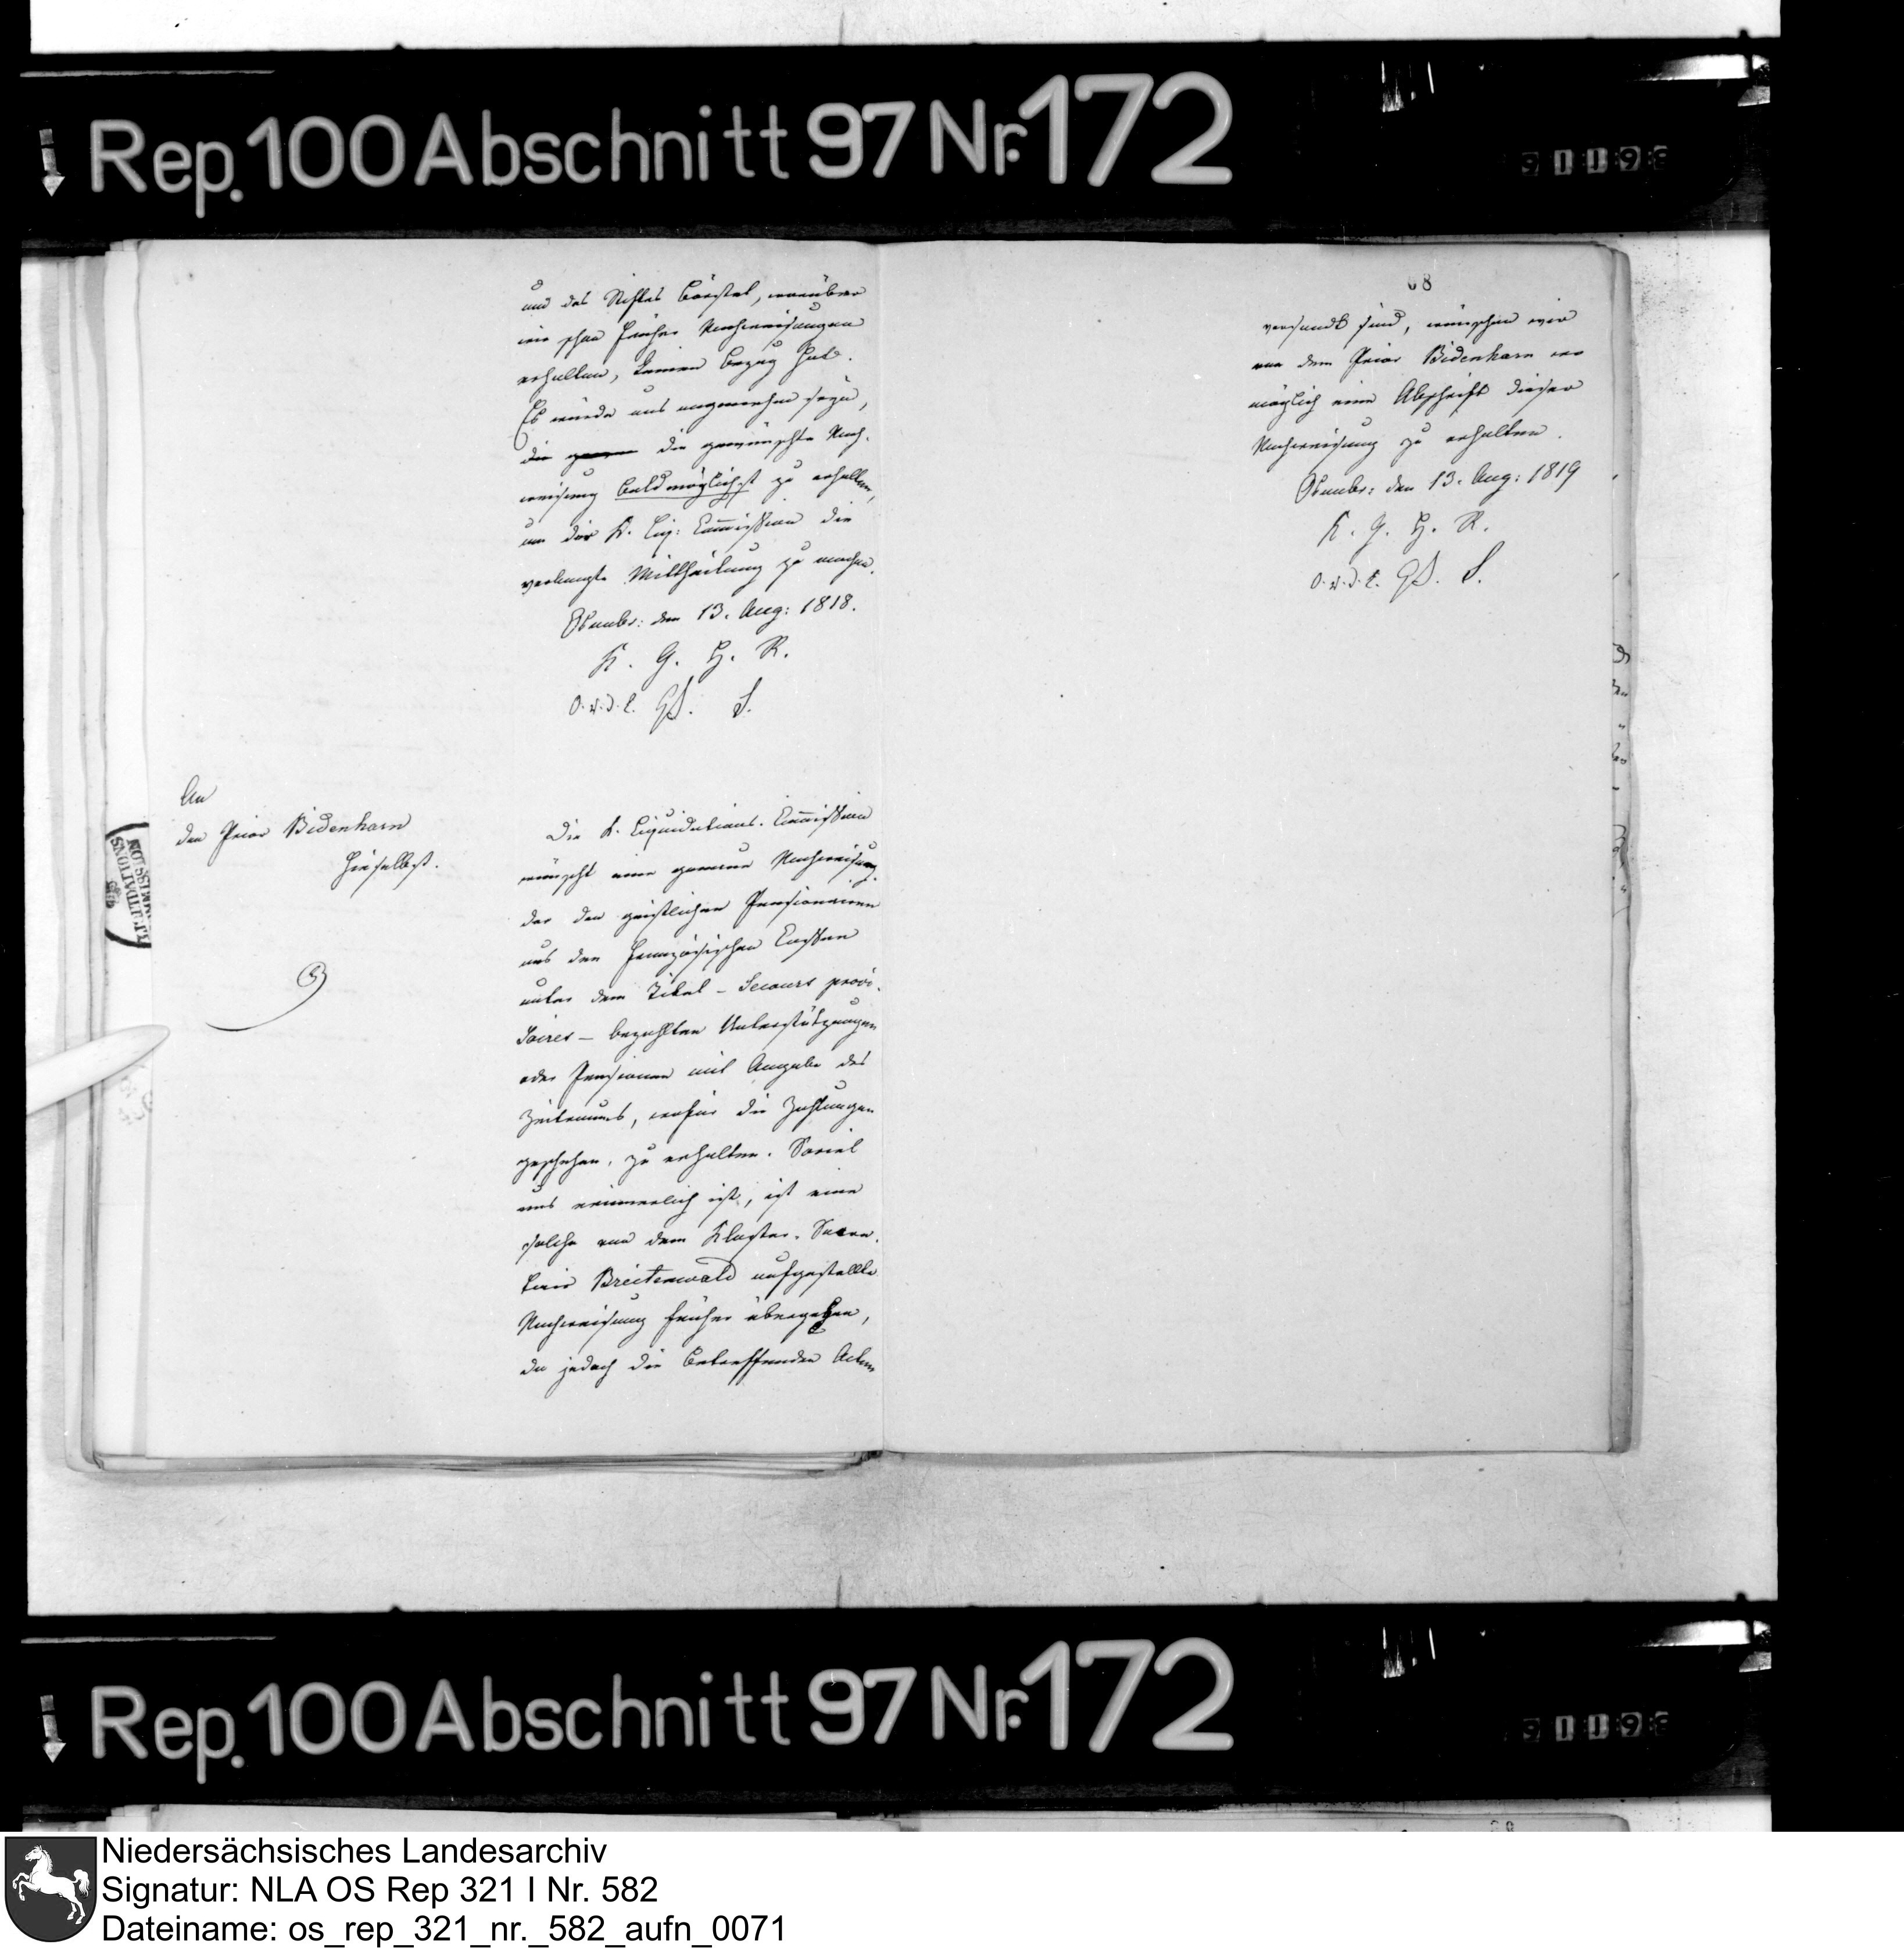 Rep. 100 Abschnitt 97 Nr. 172
und des Stiftes Börstel, worüber
wir schon früher Nachweisungen
erhalten, keinen Bezug hat.
Es würde uns angenehm seyn,
die die gewünschte Nach-
weisung baldmöglichst zu erhalten,
um der K. Liq: Commission die
verlangte Mittheilung zu machen.
Osnabr: den 13. Aug: 1818.
K. G. H. R.
O. v. d. L. S.
An
den Prior Bidenharn
hieselbst.
Die K. Liquidations-Commission
wünscht eine genaue Nachweisung
der den geistlichen Pensionairen
aus den französischen Cassen
unter dem Titel – Secours provi-
soires – bezahlten Unterstützungen
oder Pensionen mit Angabe des
Zeitraums, wofür die Zahlungen
geschehen, zu erhalten. Soviel
uns erinnerlich ist, ist eine
solche von dem Kloster-Secre-
tair Breitenwald aufgestellte
Nachweisung früher übergeben,
da jedoch die betreffenden Acten
68
versandt sind, wünschen wir
von dem Prior Bidenharn wo
möglich eine Abschrift dieser
Nachweisung zu erhalten.
Osnabr: den 13. Aug: 1819
K. G. H. R.
O. v. d. L. S.
Rep. 100 Abschnitt 97 Nr. 172
Niedersächsisches Landesarchiv
Signatur: NLA OS Rep 321 I Nr. 582
Dateiname: os_rep_321_nr._582_aufn_0071